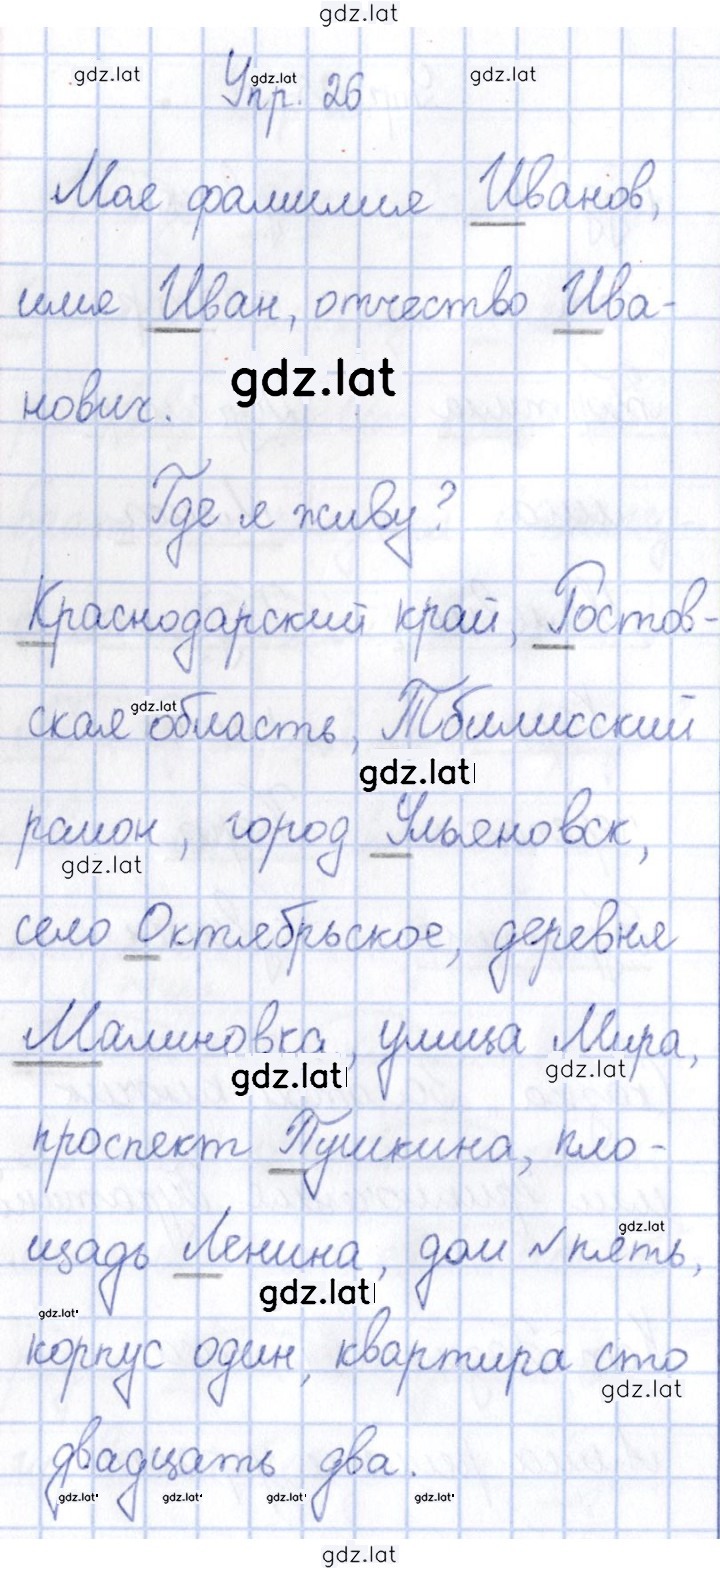 gdz.lat
gdz.lat gdz.lat gdz.lat
Упр. 26
Мое фамилия Иванов,
имя Иван, отчество Ива-
gdz.lat
нович.
Где я живу?
Краснодарский край, Ростов-
gdz.lat
ская область, Тбилисский
gdz.lat
район, город Ульяновск,
gdz.lat
село Октябрьское, деревня
Малиновка, улица Мира,
gdz.lat gdz.lat
проспект Пушкина, пло-
gdz.lat
щадь Ленина, дом пять,
gdz.lat
gdz.lat
корпус один, квартира сто
gdz.lat
двадцать два.
gdz.lat gdz.lat gdz.lat gdz.lat
gdz.lat